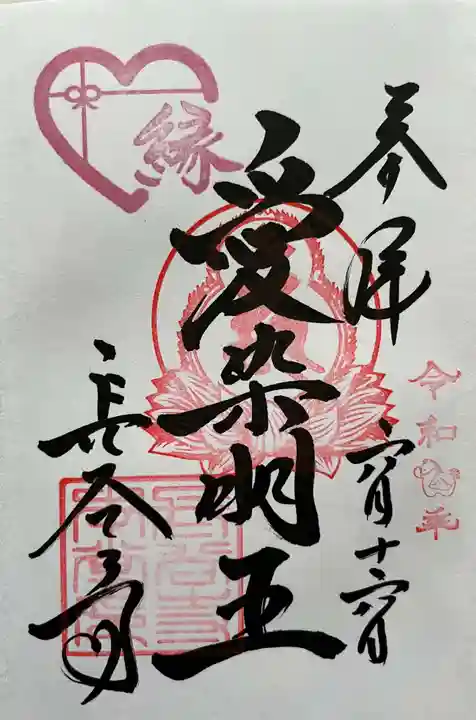 奉拝
令和年
六月十六日
縁
愛染明王
長谷寺